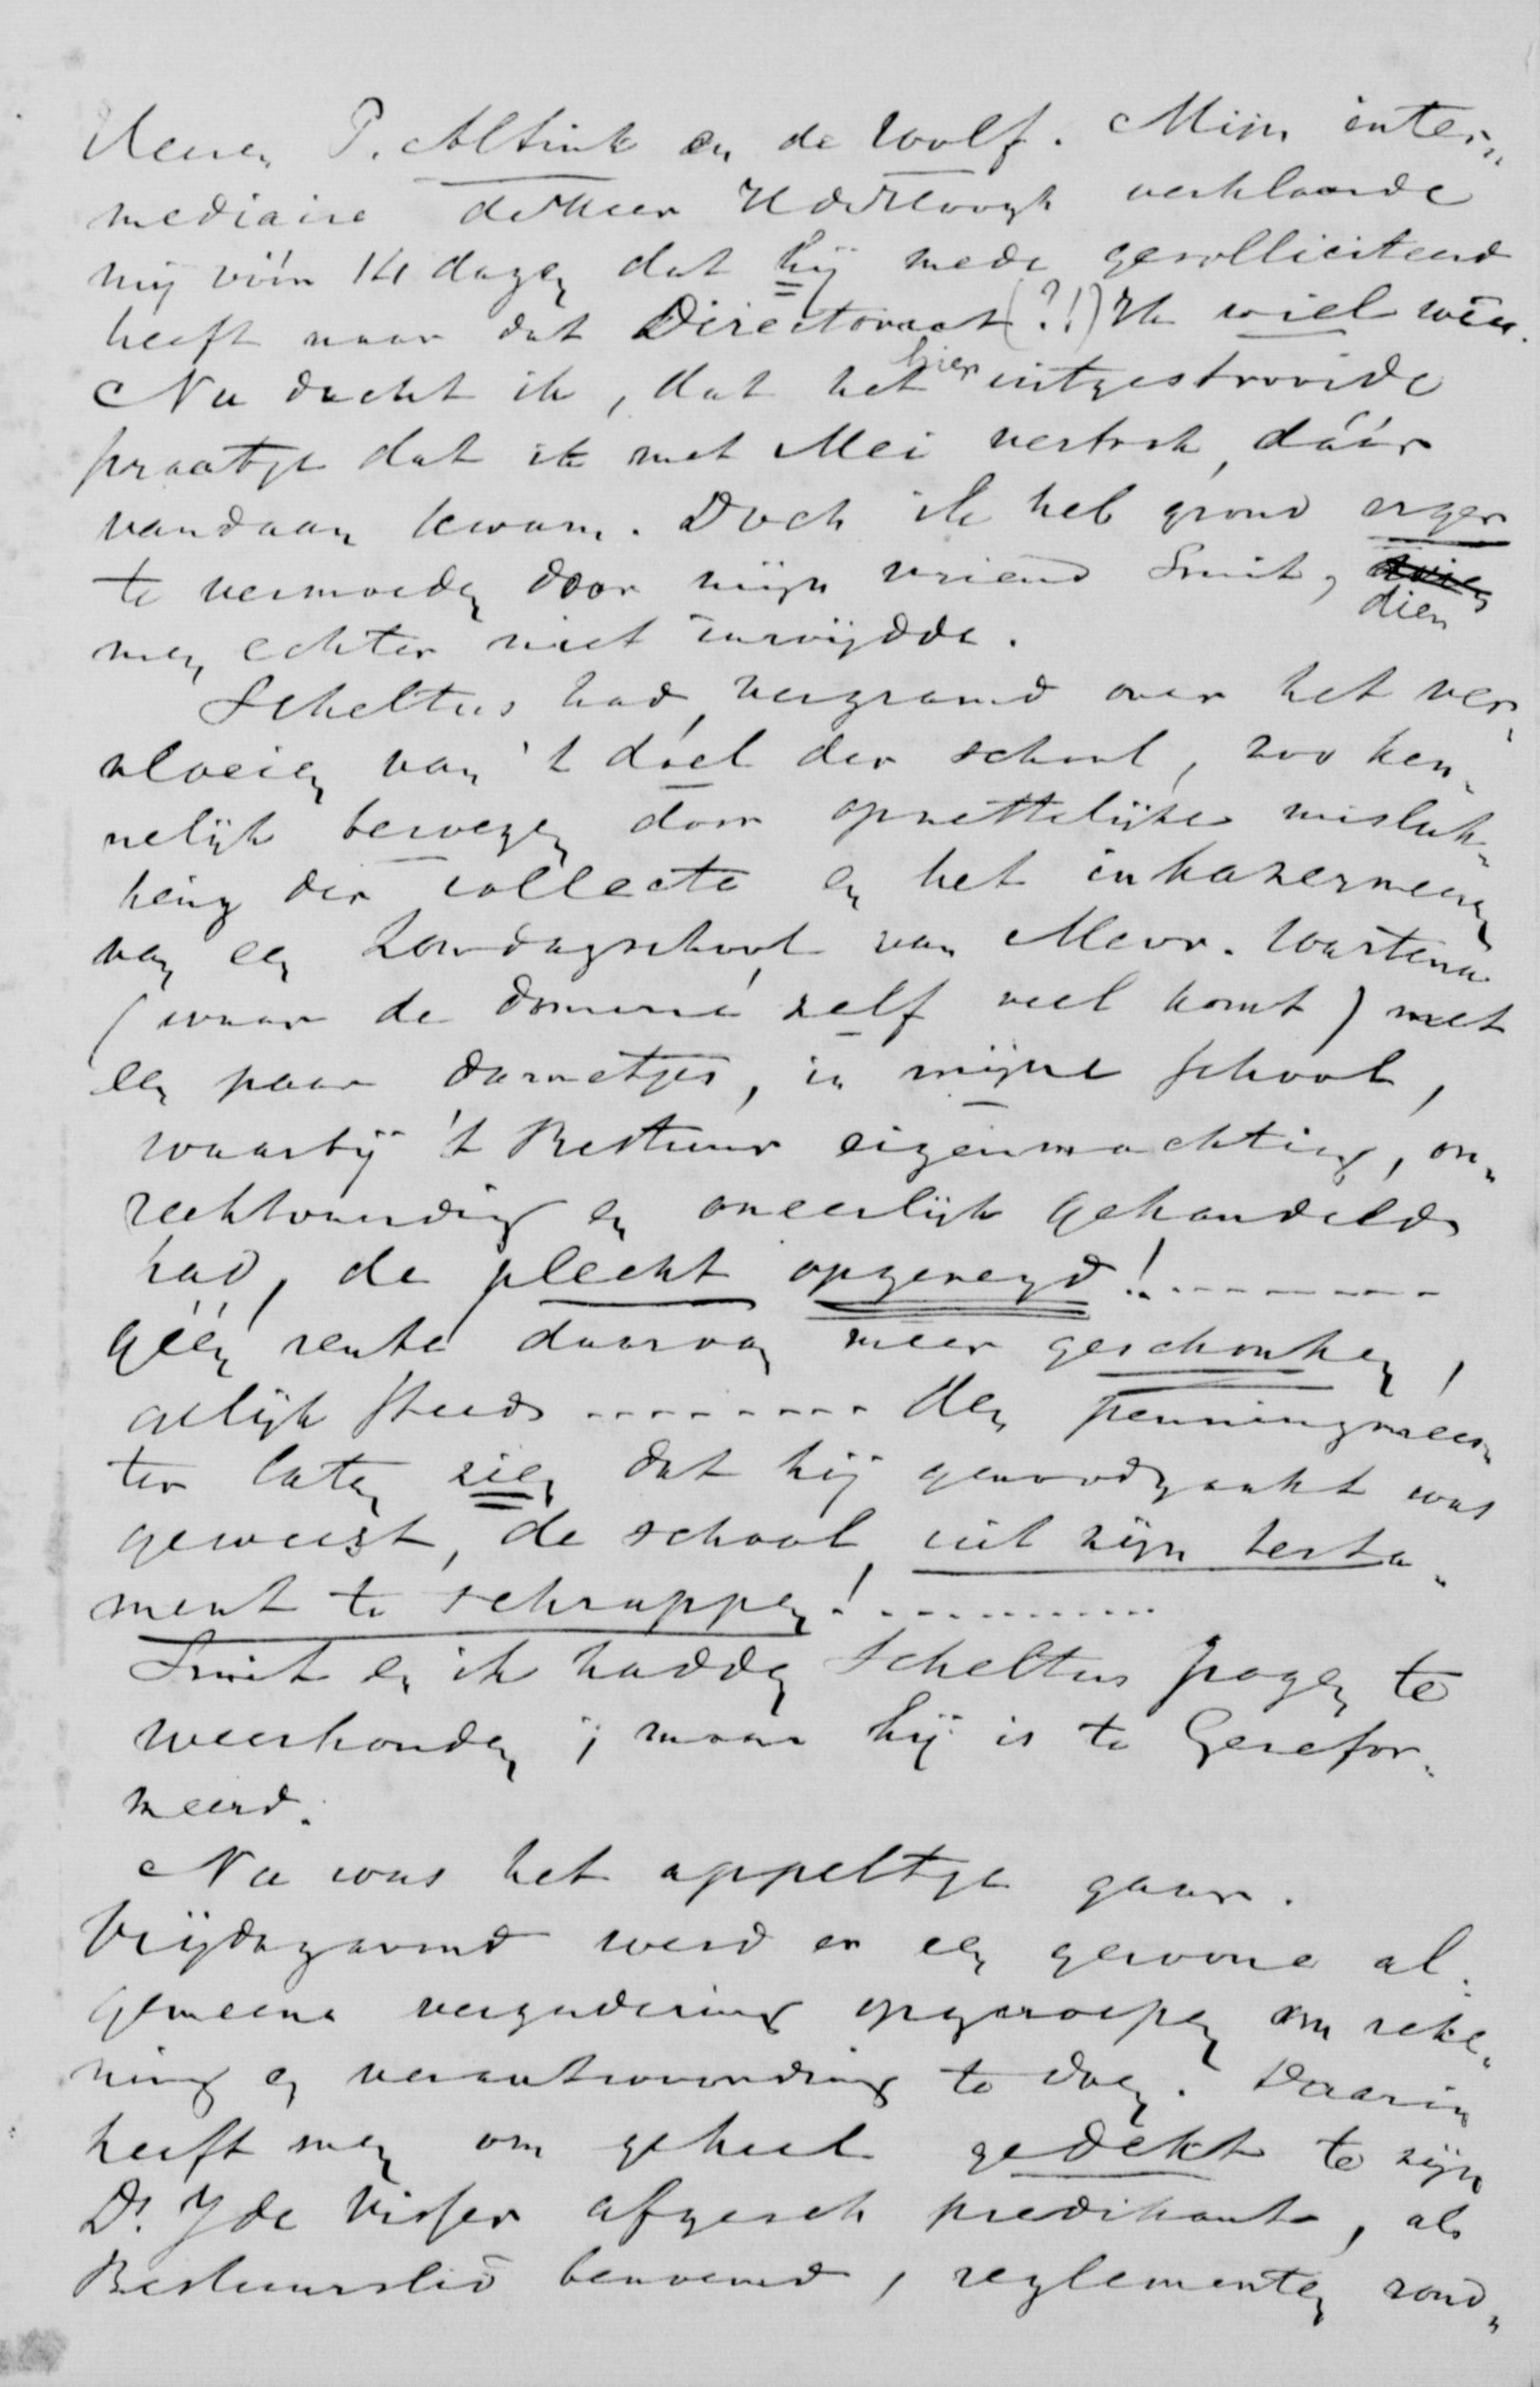 Heeren P. Altink en de Wolf. Mijn inter„
mediaire de Heer H de Hoogh verklaarde
mij vóór 14 dagen dat hij mede gesolliciteerd
heeft naar dat Directoraat (?!) Ik wiel wēn.
Nu dacht ik, dat het hier uitgestrooide
praatje dat ik met Mei vertrok, dáár
vandaan kwam. Doch ik heb grond erger
te vermoeden door mijn vriend Smit, dien
men echter niet inwijdde.
Scheltus had, vergramd over het ver„
vloeien van 't doel der school, zoo ken„
nelijk bewezen door opzettelijke misluk„
king der collecte en het inkazerneeren
van een Zondagschool van Mevr. Wartena
(waar de dominé zelf veel komt) met
een paar dametjes, in mijne school,
waarbij 't Bestuur eigenmachtig, on„
rechtvaardig en oneerlijk gehandeld
had, de plecht opgezegd! ---------
géén rente daarvan meer geschonken,
gelijk steeds --------- den penningmees„
ter laten zien dat hij genoodzaakt was
geweest, de school uit zijn testa„
ment te schrappen! -----------
Smit en ik hadden Scheltus pogen te
weerhouden; maar hij is te Gerefor„
meerd.
Nu was het appeltje gaar.
Vrijdagavond werd er een gewone al„
gemeene vergadering opgeroepen om reke„
ning en verantwoording te doen. Daarin
heeft men om geheel gedekt te zijn
Dr. Y de Visser afgesch predikant, als
Bestuurslid benoemd, reglementen rond„